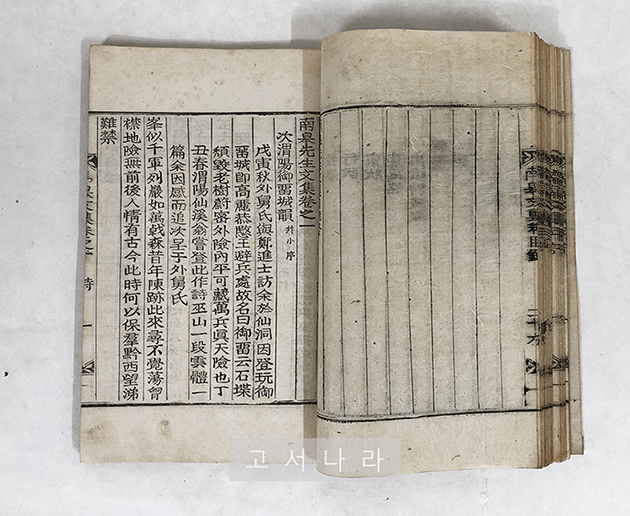 南皐先生文集卷之一
次渭陽御留城韻 幷小序
戊寅秋外舅氏與鄭進士訪余於仙洞因登玩御
留城卽高麗恭愍王避兵處故名曰御留云石堞
頹毁老樹蔚密外險內平可藏萬兵眞天險也丁
丑春渭陽仙溪翁嘗登此作詩巫山一段雲體一
篇余因感而追次呈于外舅氏
峯似千軍列巖如萬戟森昔年陳跡此來尋不覺蕩胷
襟地險無前後人情有古今此時何以保羣黔西望涕
難禁
文集卷之一 詩 一
고서나라